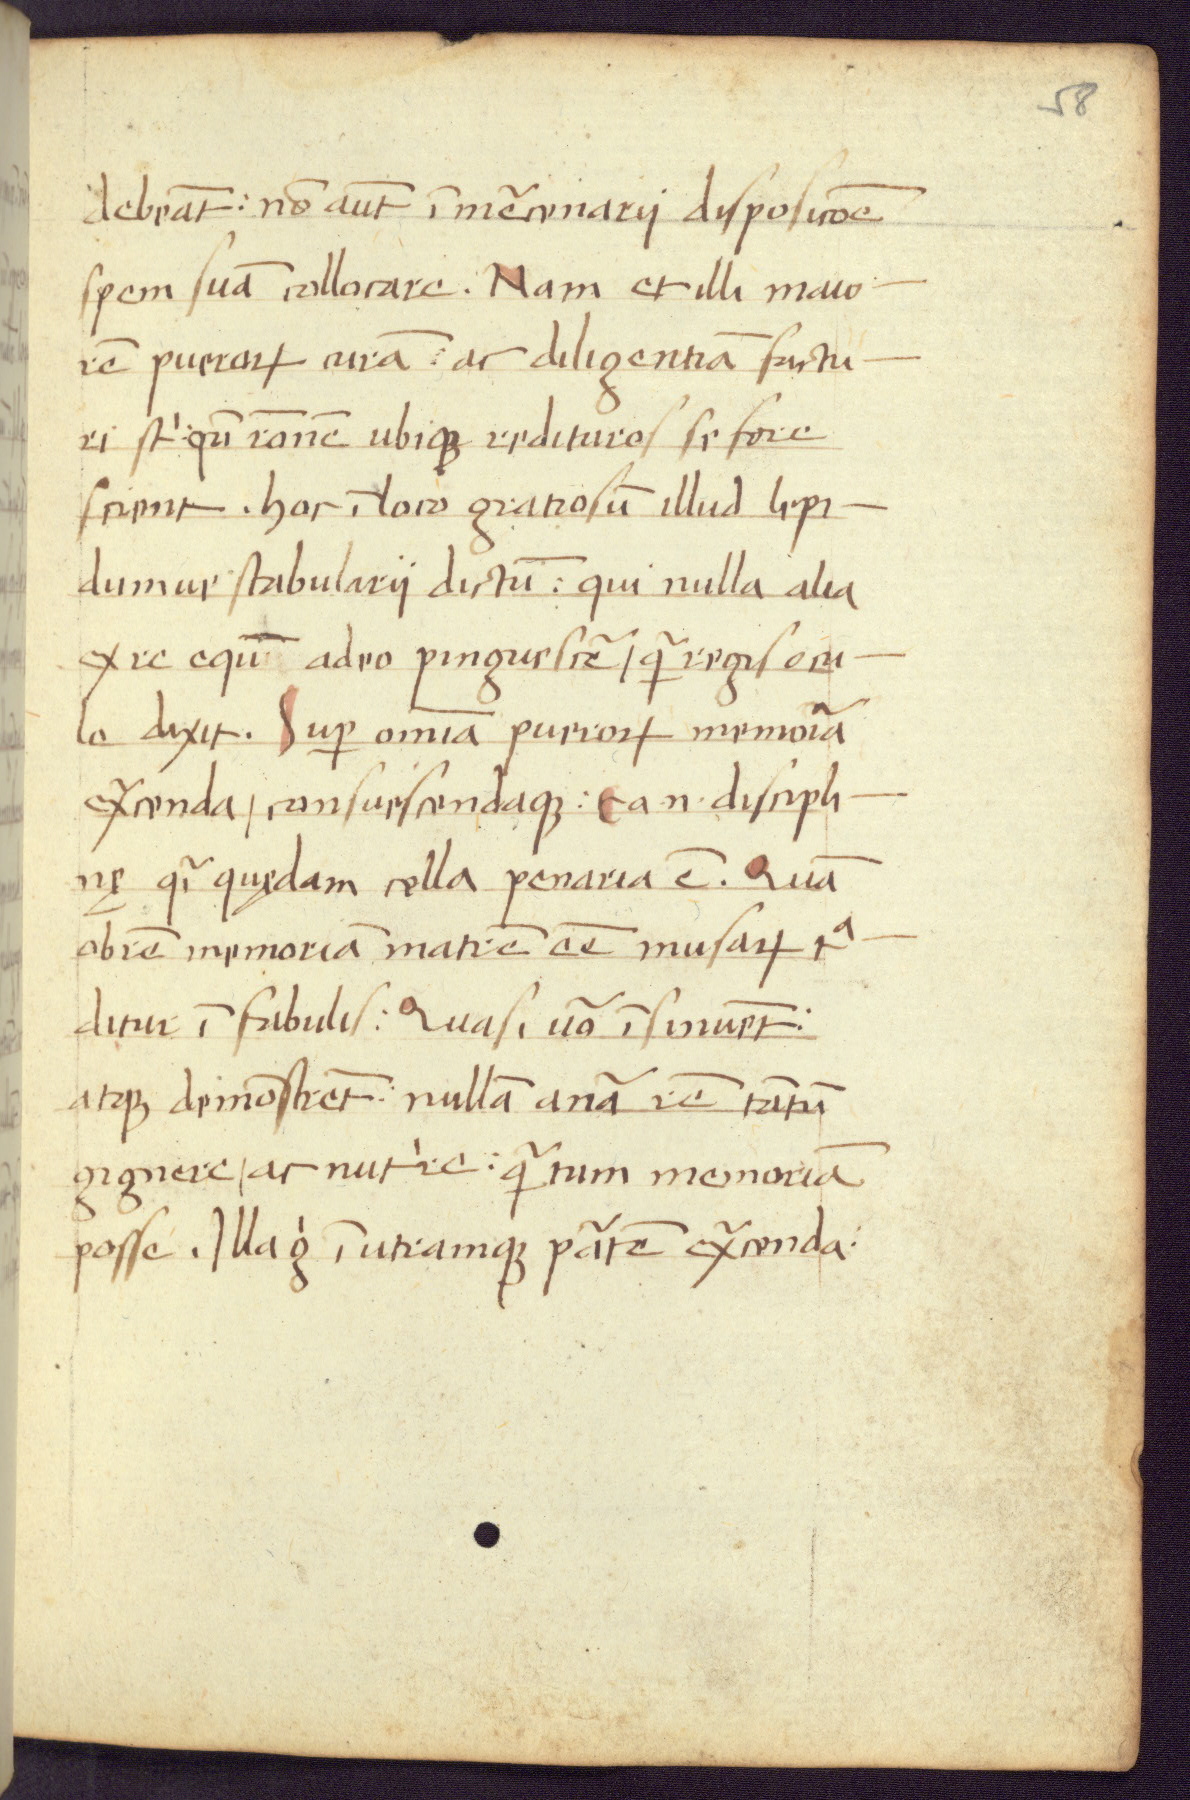 58
debeāt: nō aūt ī mcͤenarij disposicōē
spem suā collocare. Nam et illi maio-
rē pueroꝝ curā: ac diligentiā factu-
ri st': qū rōnē ubiqꝫ reddituros se fore
scient. hoc ī loco gratiosū illud lepi-
dumue stabularij dictū: qui nulla alia
ex re equū adeo pinguescē̃ / qr̃ regis ocu-
lo dixit. Suꝑ omīa pueroꝝ memor̃ia
ex̃cenda / consuescendaqꝫ: ea .n. discipli-
nę qr̃ quędam cella penaria ē. Quā
obrē memoriā matrē eē musaꝝ tᵃ-
ditur ī fabulis: Quasi uõ īsinuēt:
atqꝫ demōstrēt: nullā anã rē tātū
gignere / ac nut're: qr̃tum memoriā
posse. Illa g̊ ī utramqꝫ pãtē ex̃cenda: